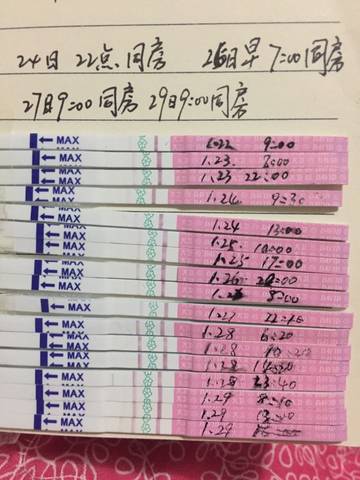 24日 22点同房 26日早7:00同房
27日9:00同房 29日9:00同房
← MAX 1.22 9:00
← MAX 1.23. 8:00
← MAX 1.23 22:00
← MAX 1.24 9:30
← MAX 1.24 13:00
← MAX 1.25. 10:00
← MAX 1.25 17:00
← MAX 1.26
← MAX
← MAX 1.27
← MAX 1.28 6:20
← MAX 1.28
← MAX 1.28
← MAX 1.28 23:40
← MAX 1.29 8:10
← MAX 1.29
← MAX 1.29